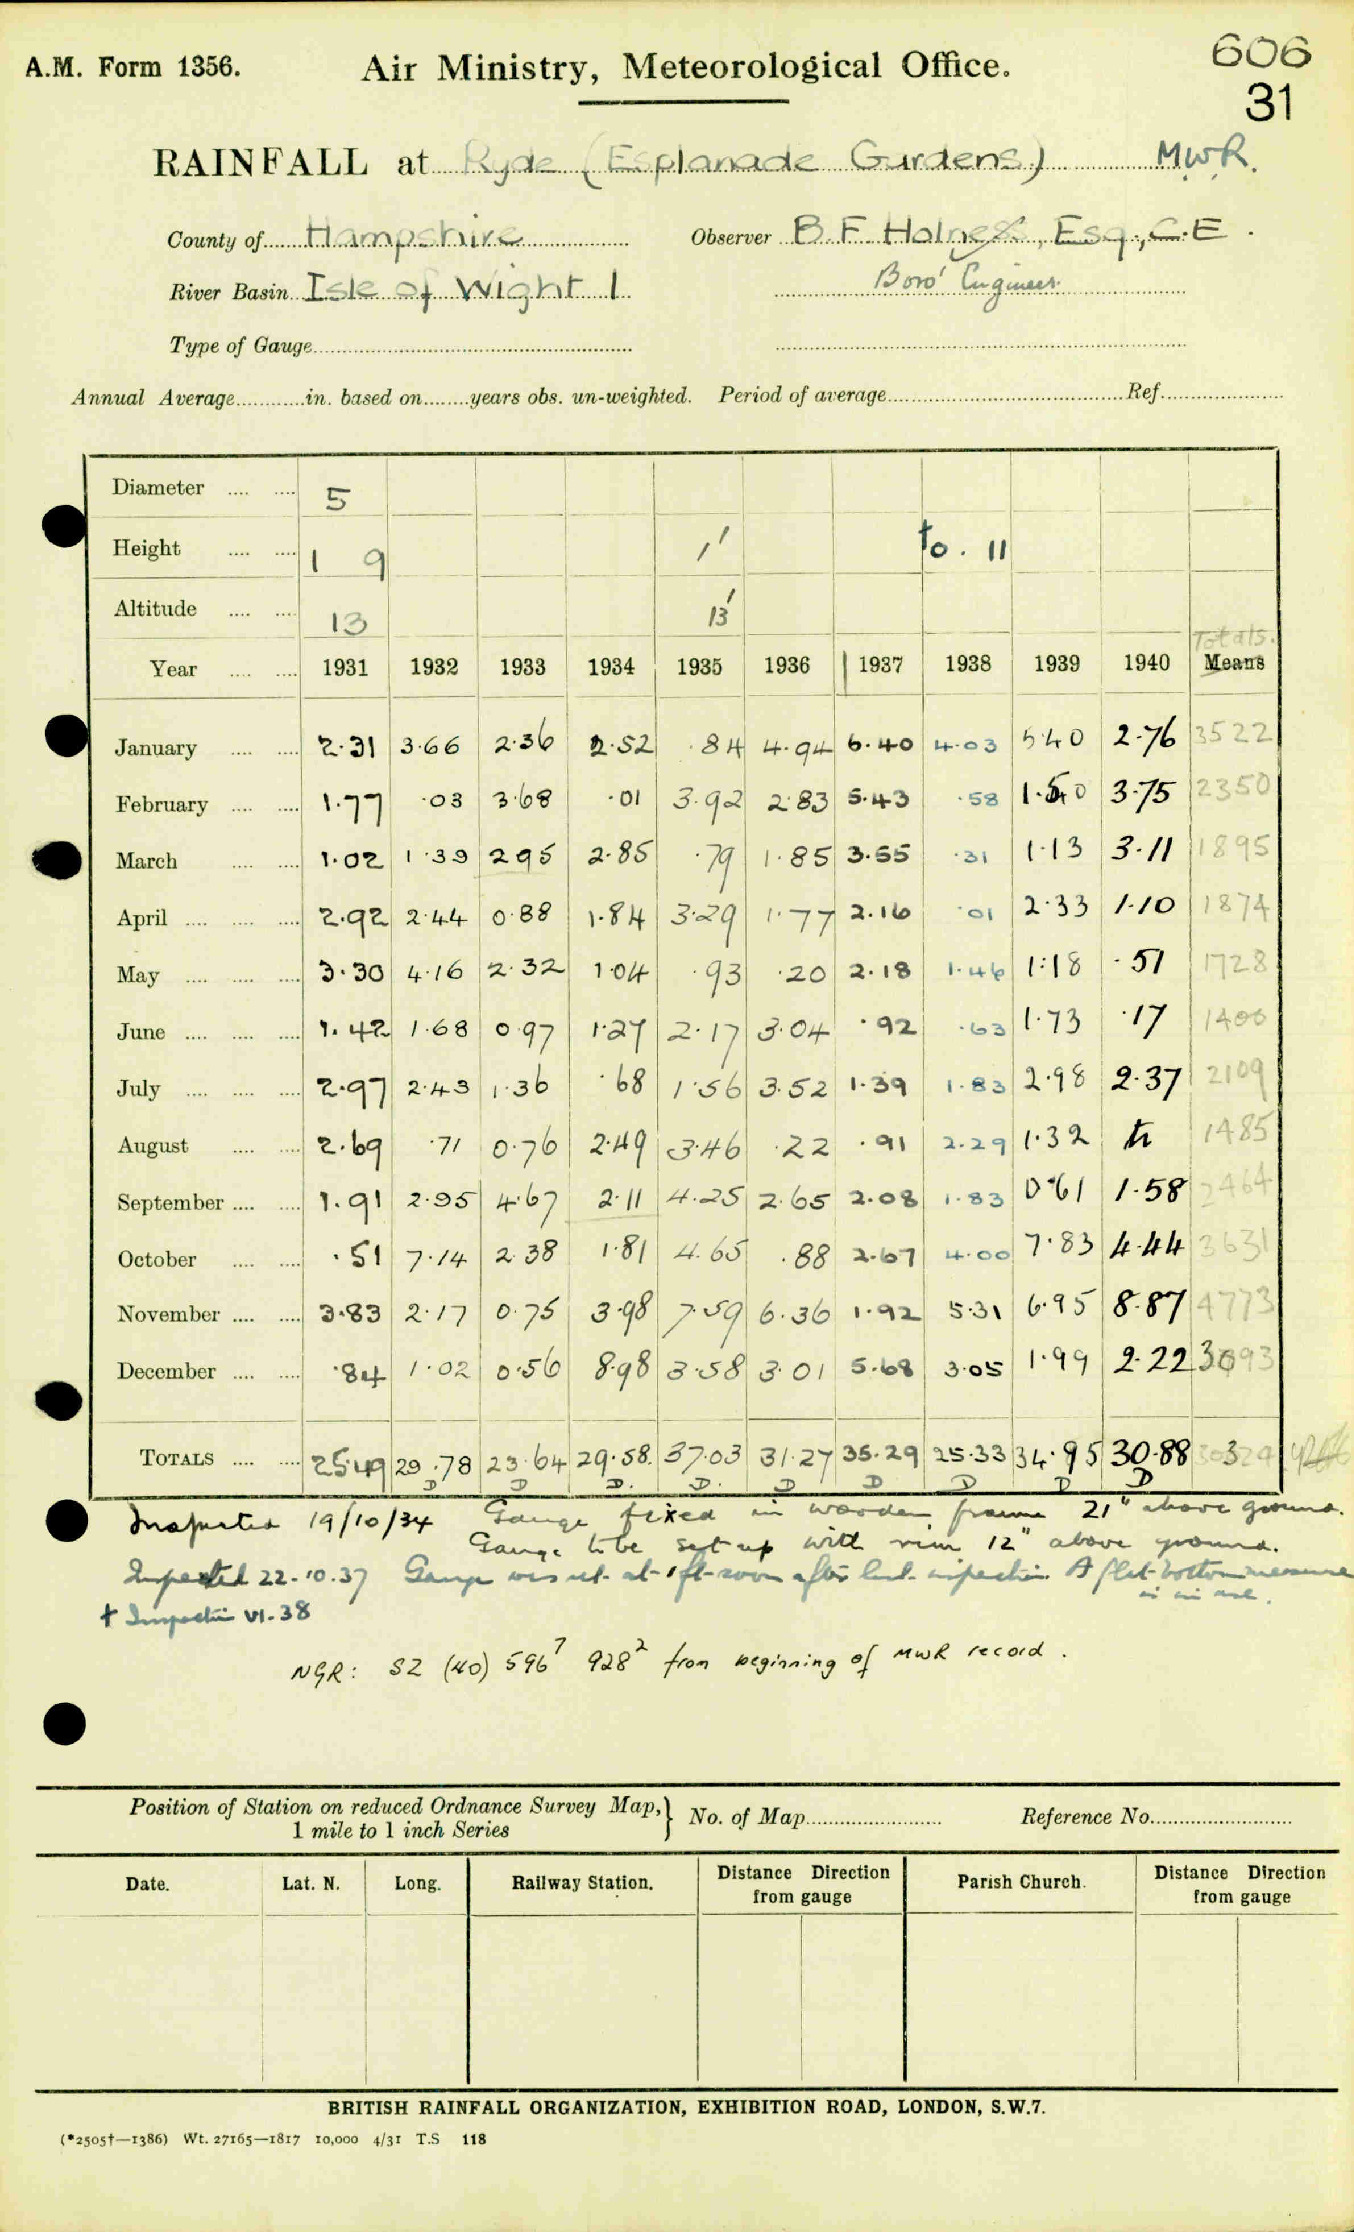 A.M. Form 1356.
Air Ministry, Meteorological Office.
606
31
RAINFALL at Ryde (Esplanade Gardens) M.W.R.
County of Hampshire Observer B F Holness, Esq., C.E.
River Basin Isle of Wight 1 Boro' Engineer.
Type of Gauge
Annual Average in. based on years obs. un-weighted. Period of average Ref.
Diameter .... .... 5
Height .... .... 1 9 1' † 0 . 11
Altitude .... .... 13 13'
Totals.
Year .... .... 1931 1932 1933 1934 1935 1936 1937 1938 1939 1940 Means
January .... .... 2.31 3.66 2.36 2.52 .84 4.94 6.40 4.03 5.40 2.76 3522
February .... .... 1.77 .03 3.68 .01 3.92 2.83 5.43 .58 1.50 3.75 2350
March .... .... 1.02 1.39 2.95 2.85 .79 1.85 3.55 .31 1.13 3.11 1895
April .... .... .... 2.92 2.44 0.88 1.84 3.29 1.77 2.16 .01 2.33 1.10 1874
May .... .... .... 3.30 4.16 2.32 1.04 .93 .20 2.18 1.46 1.18 .51 1728
June .... .... .... 1.42 1.68 0.97 1.27 2.17 3.04 .92 .63 1.73 .17 1400
July .... .... .... 2.97 2.43 1.36 .68 1.56 3.52 1.39 1.83 2.98 2.37 2109
August .... .... 2.69 .71 0.76 2.49 3.46 .22 .91 2.29 1.32 tr 1485
September .... .... 1.91 2.95 4.67 2.11 4.25 2.65 2.08 1.83 0.61 1.58 2464
October .... .... .51 7.14 2.38 1.81 4.65 .88 2.67 4.00 7.83 4.44 3631
November .... .... 3.83 2.17 0.75 3.98 7.59 6.36 1.92 5.31 6.95 8.87 4773
December .... .... .84 1.02 0.56 8.98 3.58 3.01 5.68 3.05 1.99 2.22 3093
TOTALS .... .... 25.49 29.78 23.64 29.58. 37.03 31.27 35.29 25.33 34.95 30.88
D D D. D. D D D D D
Inspected 19/10/34 Gauge fixed in wooden frame 21" above ground.
Gauge to be set up with rim 12" above ground.
Inspected 22-10.37 Gauge was set at 1 ft soon after last inspection. A flat-bottom measure
is in use.
† Inspection VI.38
NGR: SZ (40) 596⁷ 928² from beginning of MWR record.
Position of Station on reduced Ordnance Survey Map,} No. of Map Reference No.
1 mile to 1 inch Series
Date. Lat. N. Long. Railway Station. Distance Direction from gauge Parish Church. Distance Direction from gauge
BRITISH RAINFALL ORGANIZATION, EXHIBITION ROAD, LONDON, S.W.7.
(*2505†—1386) Wt. 27165—1817 10,000 4/31 T.S 118